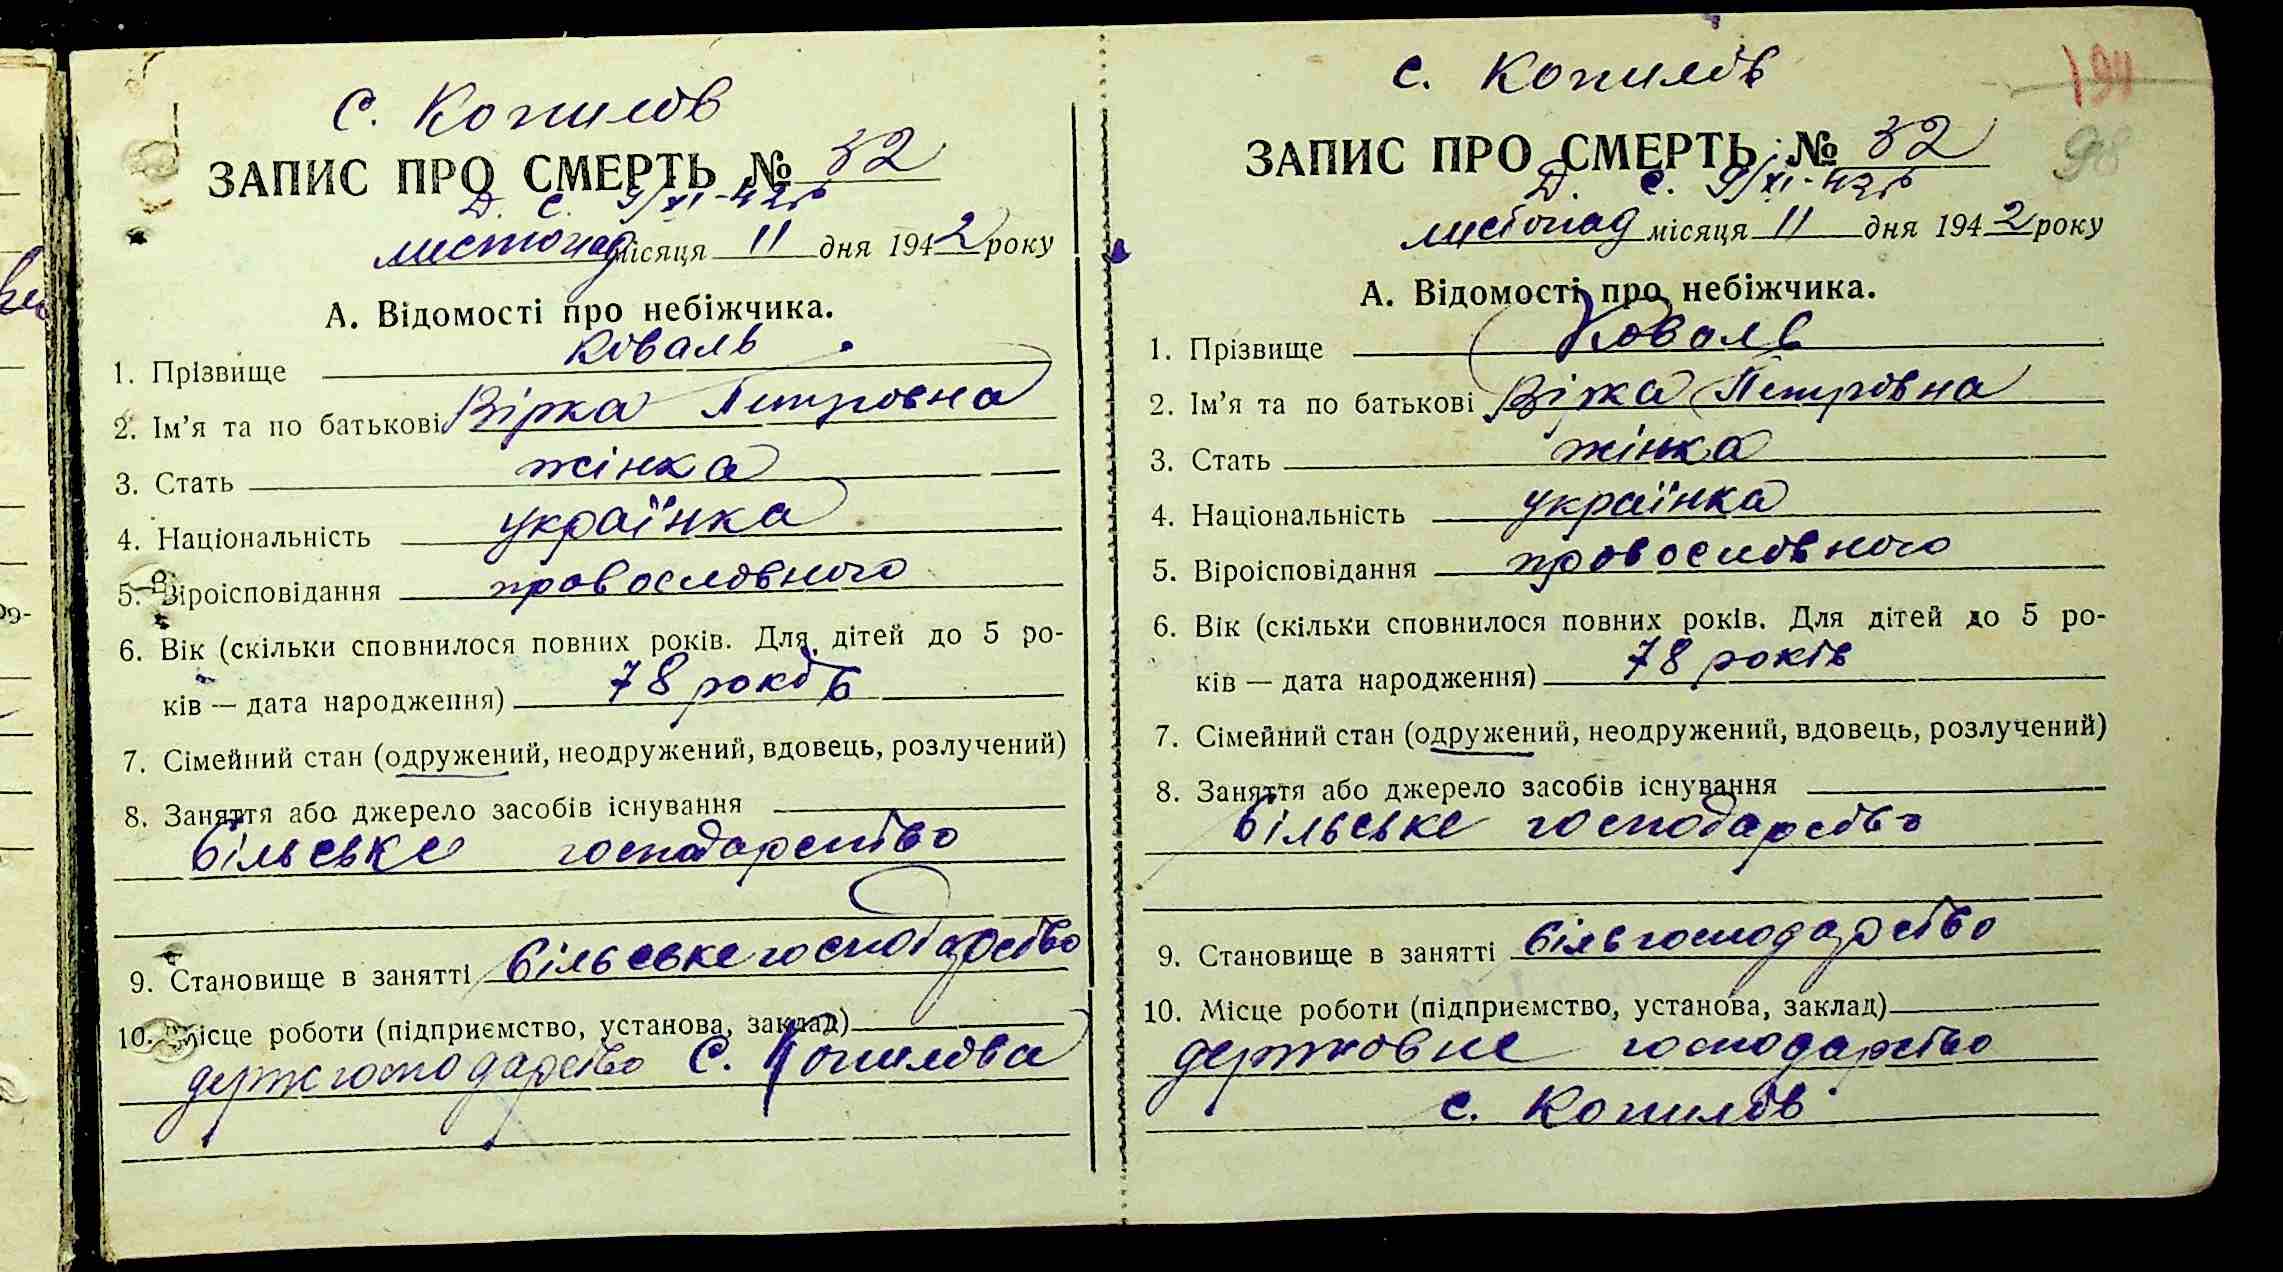 с. Копилов
ЗАПИС ПРО СМЕРТЬ № 32
Д. С. 9/XI-42 р
листопад місяця 11 дня 1942 року
А. Відомості про небіжчика.
1. Прізвище Коваль
2. Ім’я та по батькові Вірка Петровна
3. Стать жінка
4. Національність українка
5. Віроісповідання православного
6. Вік (скільки сповнилося повних років. Для дітей до 5 ро-
ків — дата народження) 78 років
7. Сімейний стан (одружений, неодружений, вдовець, розлучений)
8. Заняття або джерело засобів існування
сільське господарство
9. Становище в занятті сільське господарство
10. Місце роботи (підприємство, установа, заклад)
держгосподарство С. Копилова
с. Копилов
194
98
ЗАПИС ПРО СМЕРТЬ № 32
Д. С. 9/XI-42 р
листопад місяця 11 дня 1942 року
А. Відомості про небіжчика.
1. Прізвище Коваль
2. Ім’я та по батькові Вірка Петровна
3. Стать жінка
4. Національність українка
5. Віроісповідання православного
6. Вік (скільки сповнилося повних років. Для дітей до 5 ро-
ків — дата народження) 78 років
7. Сімейний стан (одружений, неодружений, вдовець, розлучений)
8. Заняття або джерело засобів існування
сільське господарство
9. Становище в занятті сільгосподарство
10. Місце роботи (підприємство, установа, заклад)
державне господарство
с. Копилов